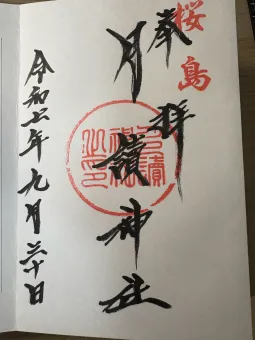 桜島
奉拝
月讀神社
令和七年九月 十日